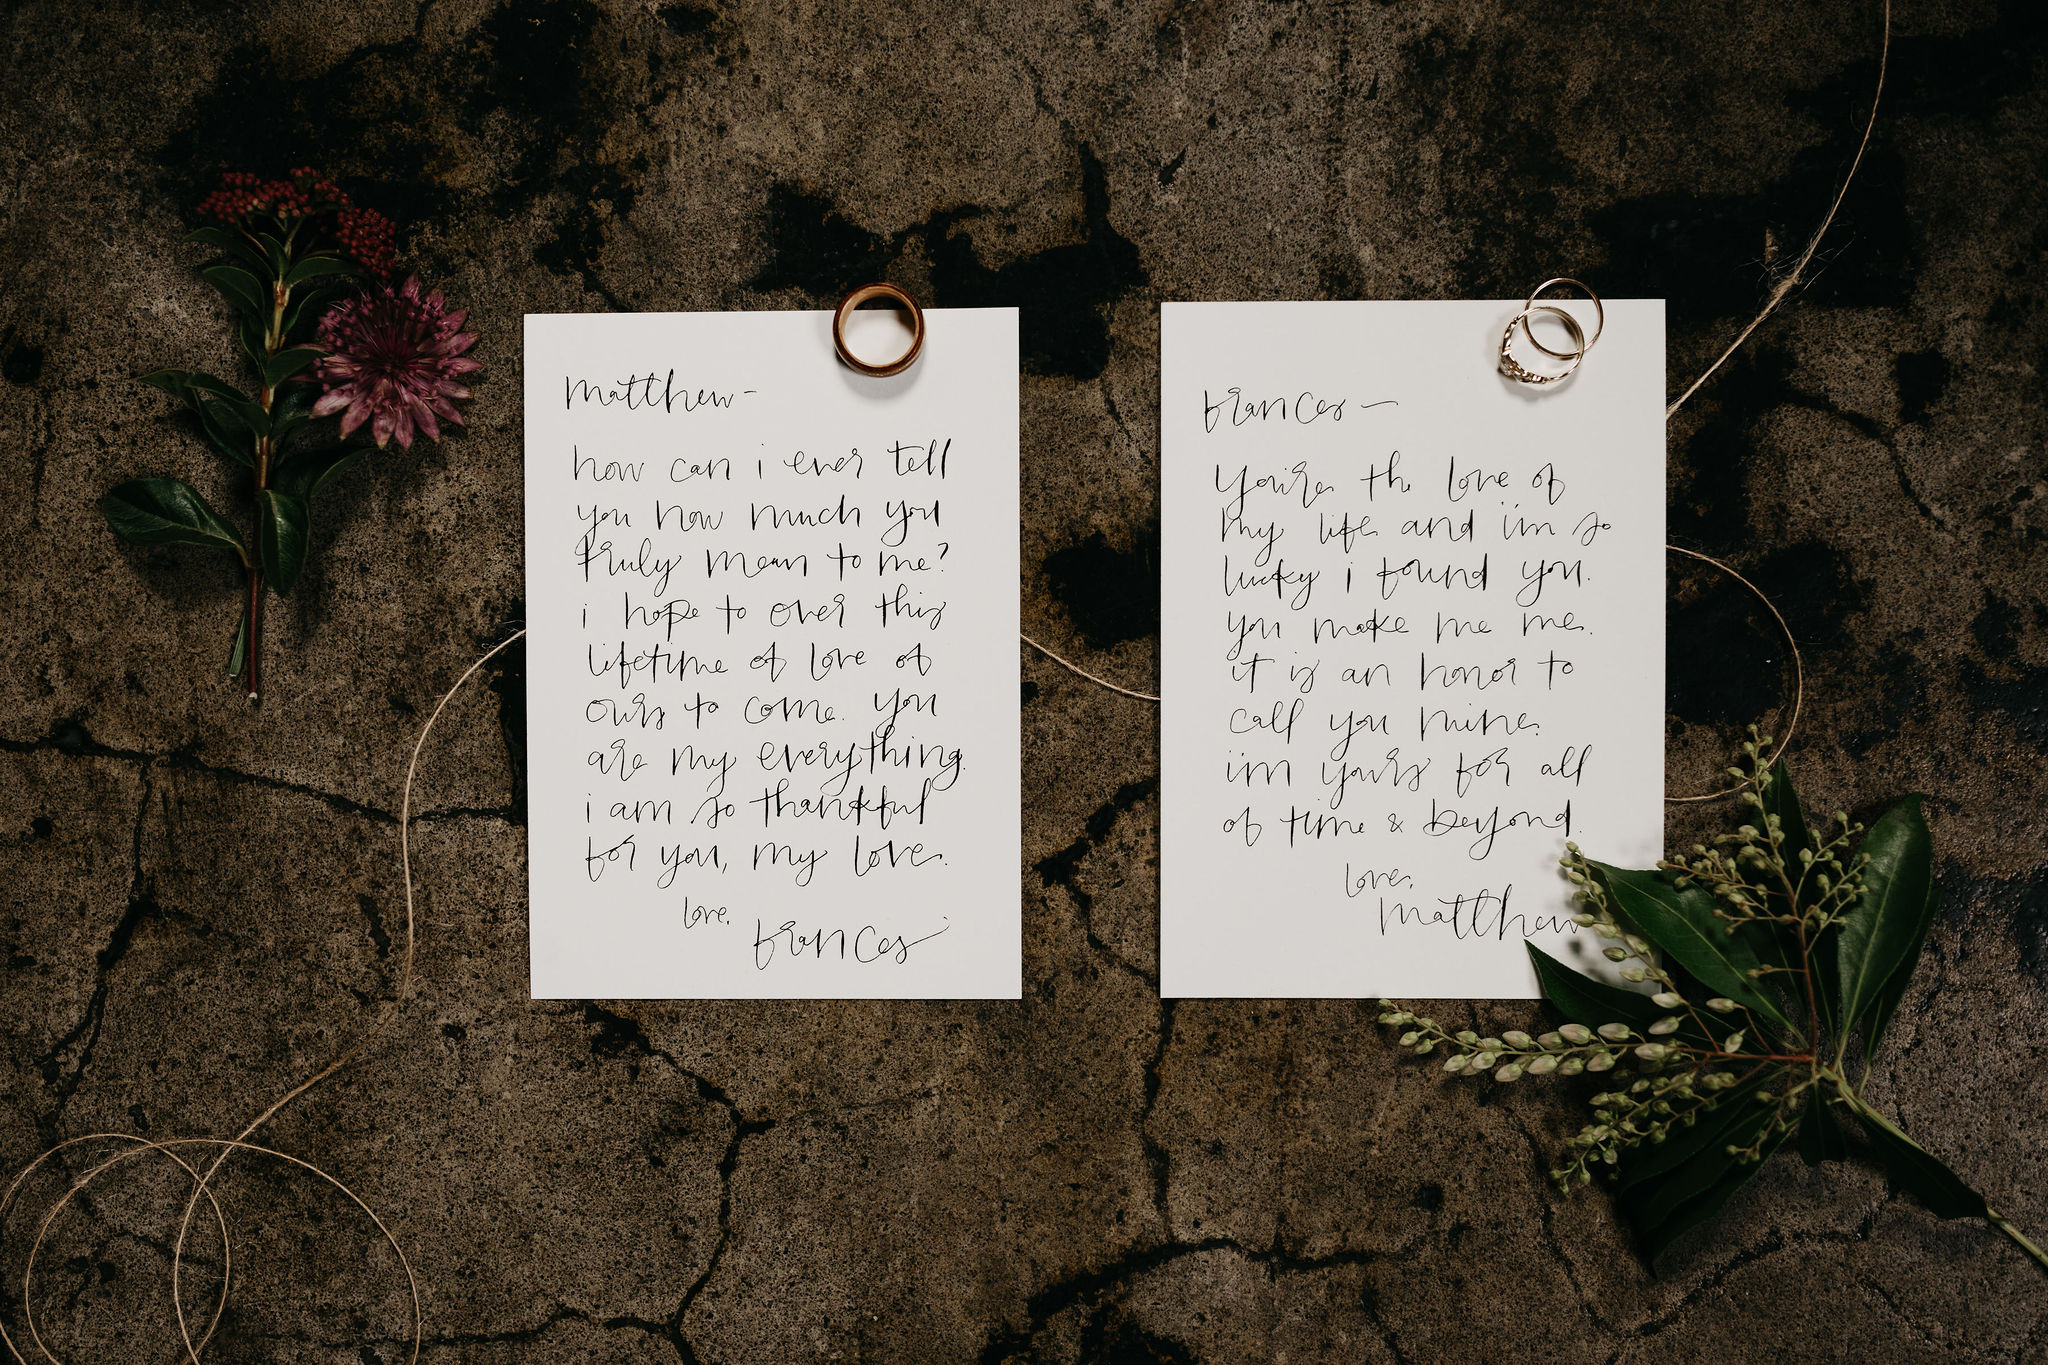 matthew-
how can i ever tell
you how much you
truly mean to me?
i hope to over this
lifetime of love of
ours to come. you
are my everything.
i am so thankful
for you, my love.
love,
frances
frances —
you're the love of
my life and i'm so
lucky i found you.
you make me me.
it is an honor to
call you mine.
i'm yours for all
of time & beyond.
love,
matthew